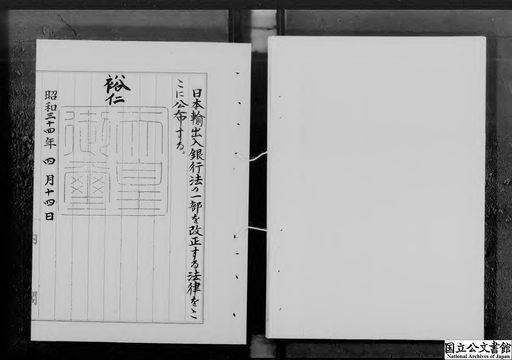 日本輸出入銀行法の一部を改正する法律をこ
こに公布する。
裕仁
天皇
御璽
昭和三十四年四月十四日
国立公文書館
National Archives of Japan